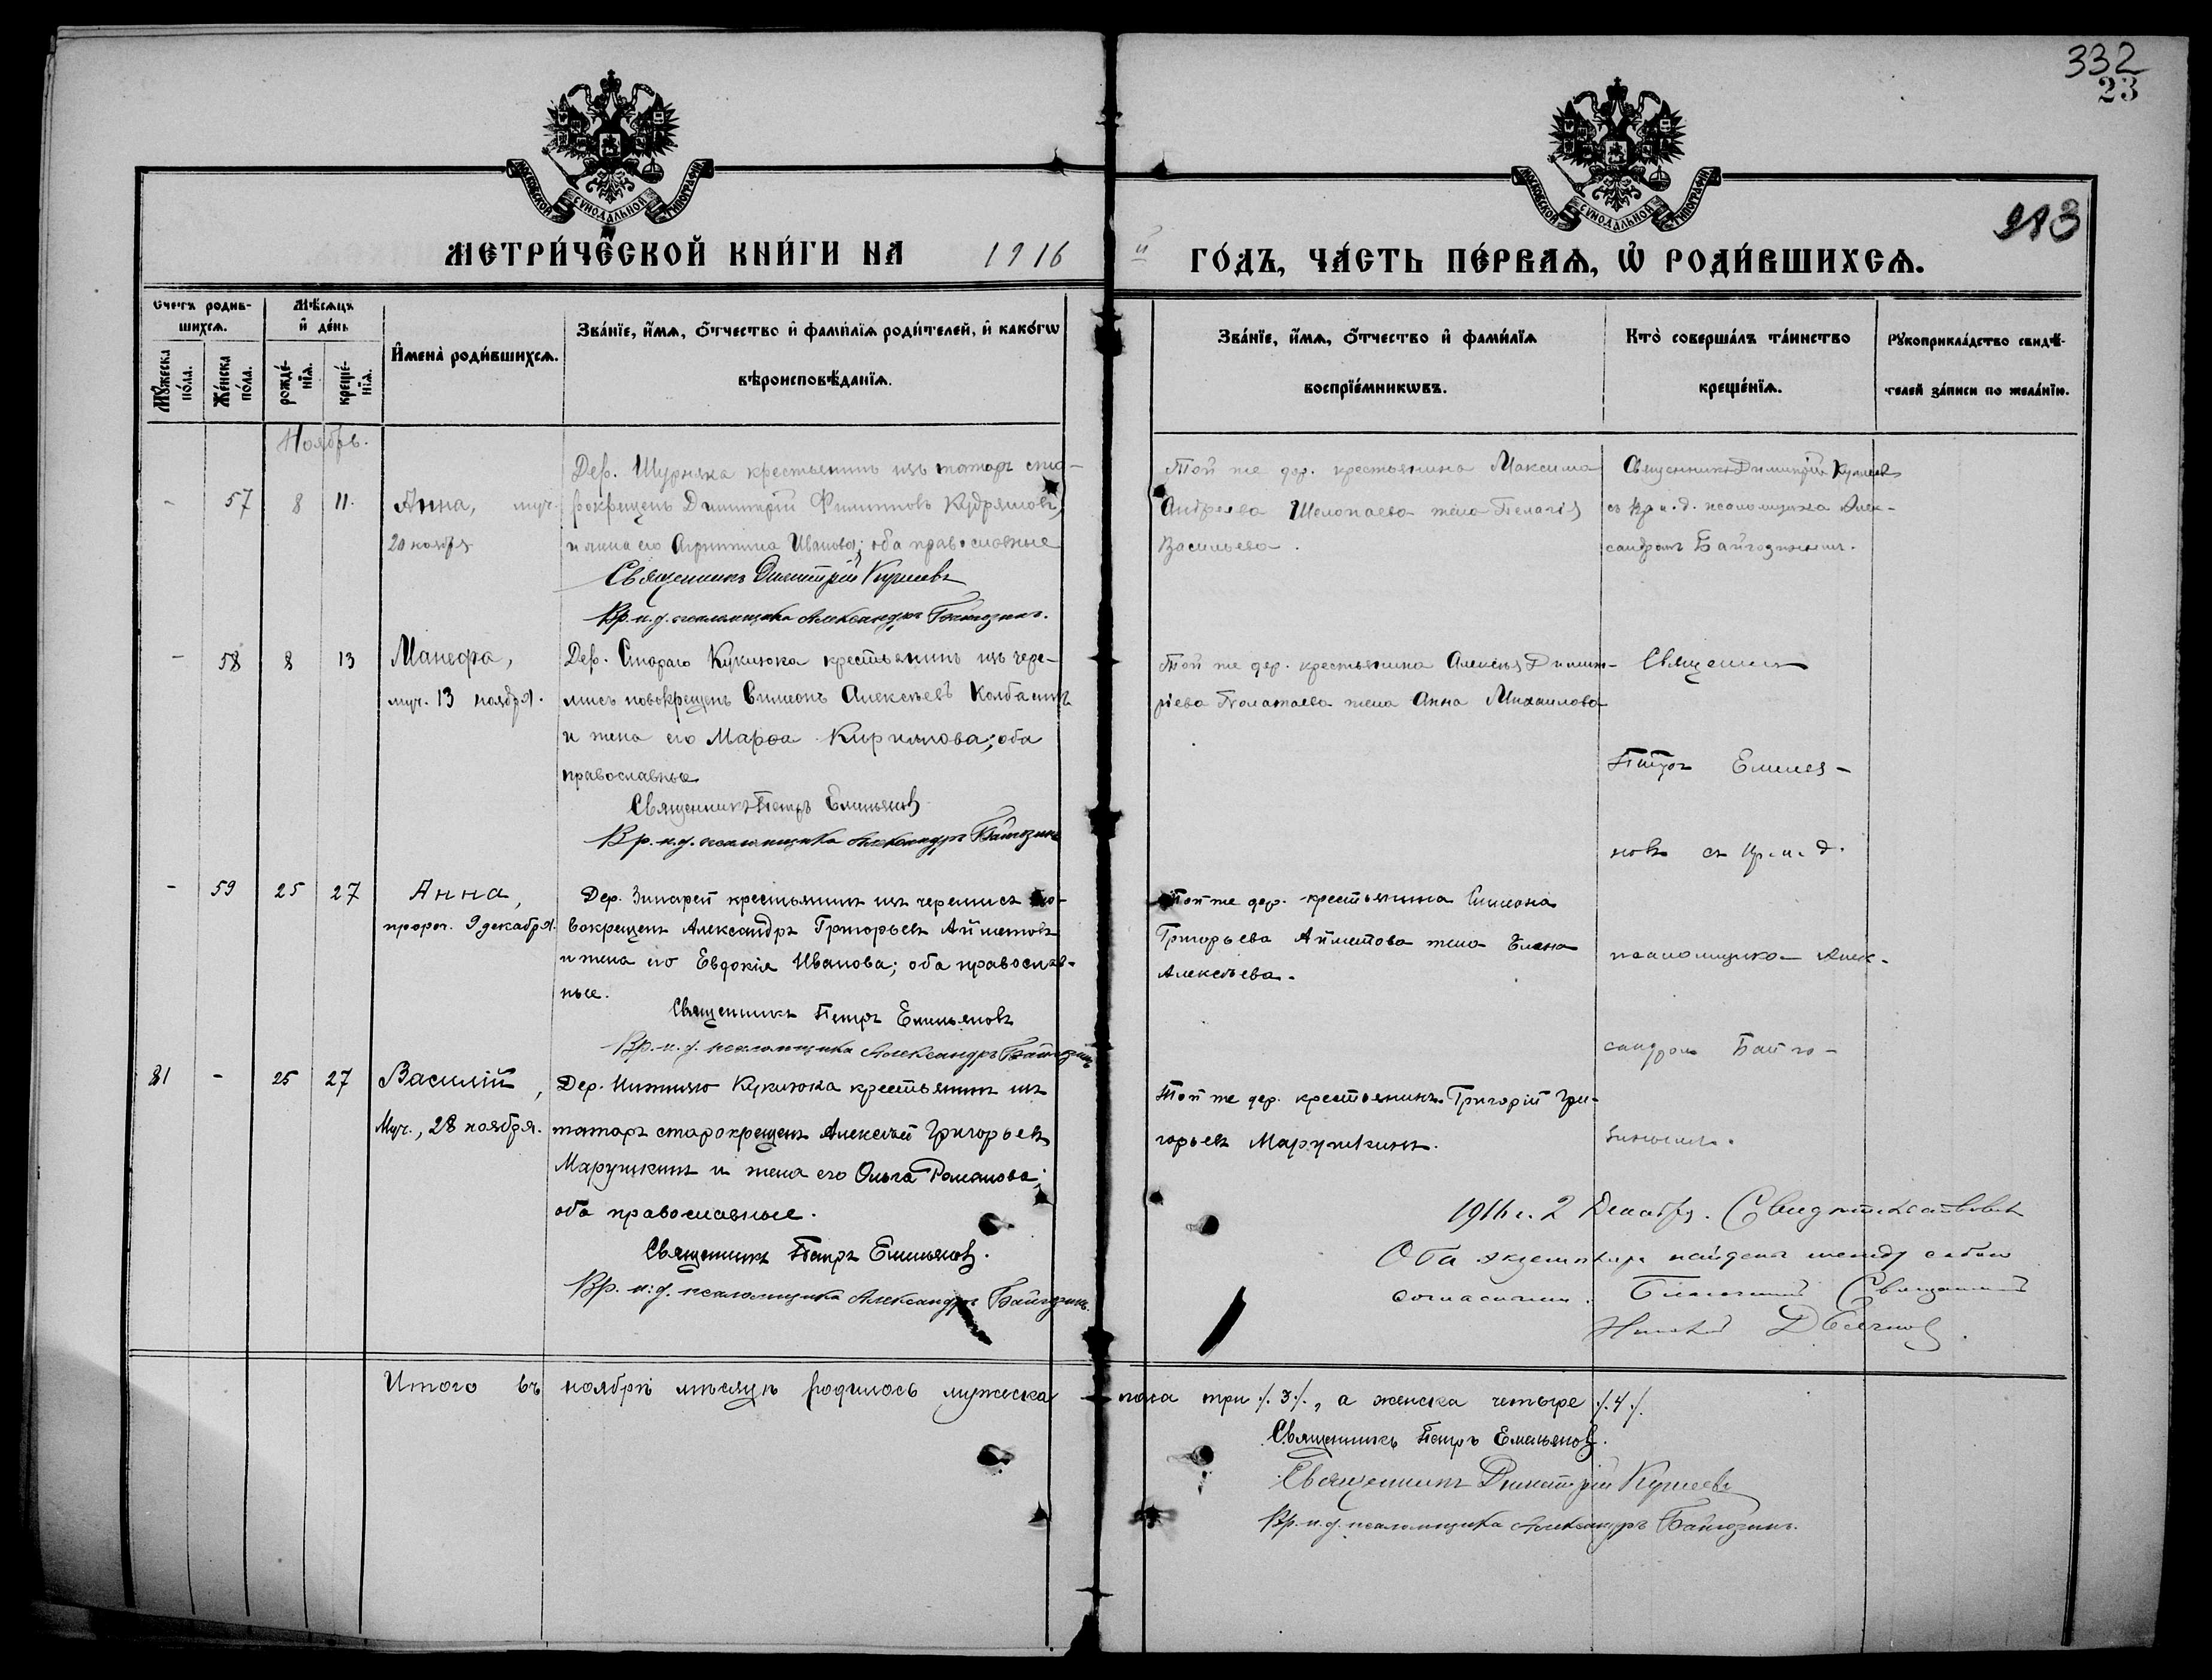 332
23
МОСКОВСКОЙ СѴНОДАЛЬНОЙ ТИПОГРАФІИ
МОСКОВСКОЙ СѴНОДАЛЬНОЙ ТИПОГРАФІИ
313
МЕТРИ́ЧЕСКОЙ КНИ́ГИ НА 1916
й ГО́ДЪ, ЧА́СТЬ ПЕ́РВАѦ, Ѡ҆ РОДИ́ВШИХСѦ.
Счетъ родив-
шихсѧ.
Мꙋжеска
по́ла.
Же́нска
по́ла.
Мѣ́сѧцъ
и҆ де́нь
рожде́-
нїѧ.
креще́-
нїѧ.
И҆мена̀ роди́вшихсѧ.
Зва́нїе, и҆́мѧ, ѻ҆́тчество и҆ фами́лїѧ роди́телей, и҆ како́гѡ
вѣроисповѣ́данїѧ.
Зва́нїе, и҆́мѧ, ѻ҆́тчество и҆ фами́лїѧ
воспрїе́мникѡвъ.
Кто̀ соверша́лъ та́инство
креще́нїѧ.
Рꙋкоприкла́дство свидѣ́-
телей за́писи по жела́нїю.
Ноябрь.
- 57 8 11.
Анна, муч.
20 ноября
Дер. Шурняка крестьянинъ изъ татаръ ста-
рокрещенъ Димитрій Филипповъ Кудряшовъ,
и жена его Агрипина Иванова; оба православные
Священникъ Димитрій Купчеевъ
Вр. и. д. псаломщика Александръ Байгозинъ.
Той же дер. крестьянина Максима
Андреева Шелопаева жена Пелагія
Васильева.
Священникъ Димитрій
съ вр. и. д. псаломщика Алек-
сандромъ Байгозинымъ.
- 58 8 13
Манефа,
муч. 13 ноября.
Дер. Стараго Кукнюка крестьянинъ изъ чере-
мисъ новокрещенъ Симеонъ Алексѣевъ Колбасинъ
и жена его Марѳа Кирилова; оба
православные
Священникъ Петръ Емельяновъ
Вр. и. д. псаломщика Александръ Байгозинъ
Той же дер. крестьянина Алексѣя Димит-
ріева Полатаева жена Анна Михаилова
Священникъ
Петръ Емелья-
новъ съ вр. и. д.
псаломщика Алек-
сандромъ Байго-
зинымъ.
- 59 25 27
Анна,
пророч. 9 декабря.
Дер. Зипарей крестьянинъ изъ черемисъ но-
вокрещенъ Александръ Григорьевъ Айметовъ
и жена его Евдокія Иванова; оба православ-
ные.
Священникъ Петръ Емельяновъ
Вр. и. д. псаломщика Александръ Байгозинъ
Той же дер. крестьянина Симеона
Григорьева Айметова жена Елена
Алексѣева.
81 - 25 27
Василій,
Муч., 28 ноября.
Дер. Нижняго Кукнюка крестьянинъ изъ
татаръ старокрещенъ Алексѣй Григорьевъ
Марушкинъ и жена его Ольга Романова;
оба православные.
Священникъ Петръ Емельяновъ.
Вр. и. д. псаломщика Александръ Байгозинъ.
Той же дер. крестьянинъ Григорій Гри-
горьевъ Марушкинъ.
1916 г. 2 Декабря. Свидѣтельствовалъ
Оба экземпляра найдены между собою
согласными. Благочинный Священникъ
Итого въ ноябрѣ мѣсяцѣ родилось мужеска пола три /.3/., а женска четыре /.4/.
Священникъ Петръ Емельяновъ.
Священникъ Димитрій Купчеевъ
Вр. и. д. псаломщика Александръ Байгозинъ.